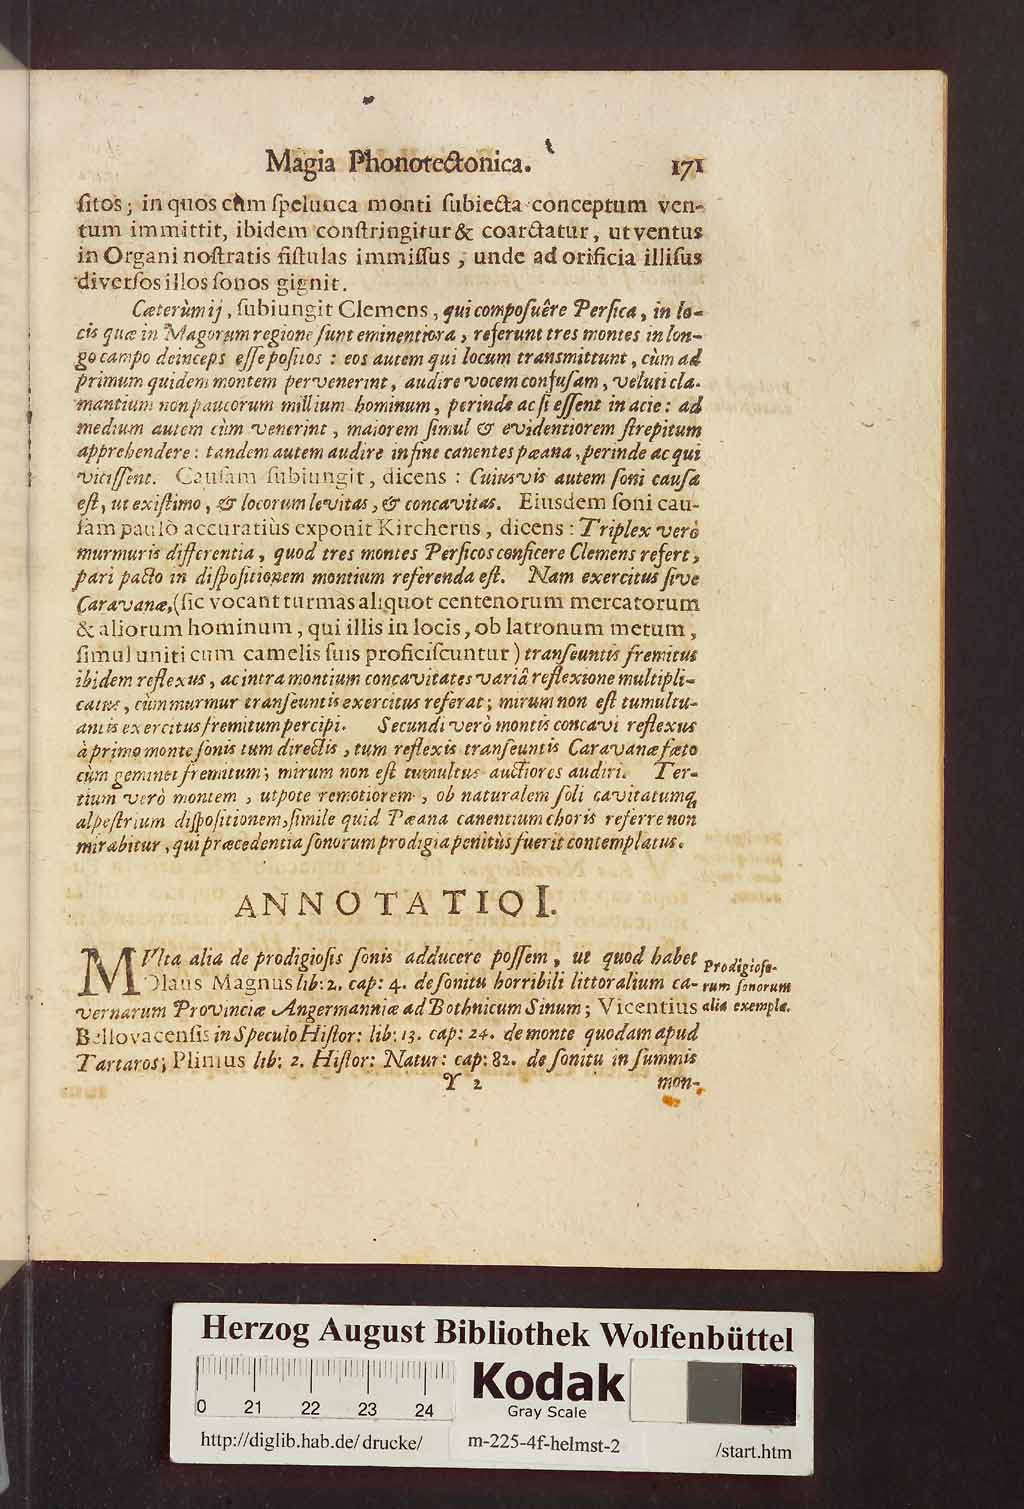 Magia Phonotectonica. 171
ſitos; in quos cùm ſpelunca monti ſubiecta conceptum ven-
tum immittit, ibidem conſtringitur & coarctatur, ut ventus
in Organi noſtratis fiſtulas immiſſus, unde ad orificia illiſus
diverſos illos ſonos gignit.
Cæterùm ij, ſubiungit Clemens, qui compoſuêre Perſica, in lo-
cis quæ in Magorum regione ſunt eminentiora, referunt tres montes in lon-
go campo deinceps eſſe poſitos : eos autem qui locum transmittunt, cùm ad
primum quidem montem pervenerint, audire vocem confuſam, veluti cla-
mantium non paucorum millium hominum, perinde ac ſi eſſent in acie : ad
medium autem cùm venerint, maiorem ſimul & evidentiorem ſtrepitum
apprehendere : tandem autem audire in fine canentes pæana, perinde ac qui
viciſſent. Cauſam ſubiungit, dicens : Cuiusvis autem ſoni cauſa
eſt, ut exiſtimo, & locorum levitas, & concavitas. Eiusdem ſoni cau-
ſam paulò accuratiùs exponit Kircherus, dicens : Triplex verò
murmuris differentia, quod tres montes Perſicos conficere Clemens refert,
pari pacto in diſpoſitionem montium referenda eſt. Nam exercitus ſive
Caravanæ, (ſic vocant turmas aliquot centenorum mercatorum
& aliorum hominum, qui illis in locis, ob latronum metum,
ſimul uniti cum camelis ſuis proficiſcuntur) tranſeuntis fremitus
ibidem reflexus, ac intra montium concavitates variâ reflexione multipli-
catus, cùm murmur tranſeuntis exercitus referat; mirum non eſt tumultu-
antis exercitus fremitum percipi. Secundi verò montis concavi reflexus
à primo monte ſonis tum directis, tum reflexis tranſeuntis Caravanæ fæto
cùm geminet fremitum; mirum non eſt tumultus auctiores audiri. Ter-
tium verò montem, utpote remotiorem, ob naturalem ſoli cavitatumq́
alpeſtrium diſpoſitionem, ſimile quid Pæana canentium choris referre non
mirabitur, qui præcedentia ſonorum prodigia penitùs fuerit contemplatus.
ANNOTATIO I.
MUlta alia de prodigioſis ſonis adducere poſſem, ut quod habet
Olaus Magnus lib: 2. cap: 4. de ſonitu horribili littoralium ca-
vernarum Provinciæ Angermanniæ ad Bothnicum Sinum; Vicentius
Bellovacenſis in Speculo Hiſtor: lib: 13. cap: 24. de monte quodam apud
Tartaros; Plinius lib: 2. Hiſtor: Natur: cap: 82. de ſonitu in ſummis
Prodigioſo-
rum ſonorum
alia exempla.
Y 2 mon-
Herzog August Bibliothek Wolfenbüttel
0 21 22 23 24
Kodak
Gray Scale
http://diglib.hab.de/drucke/ m-225-4f-helmst-2 /start.htm